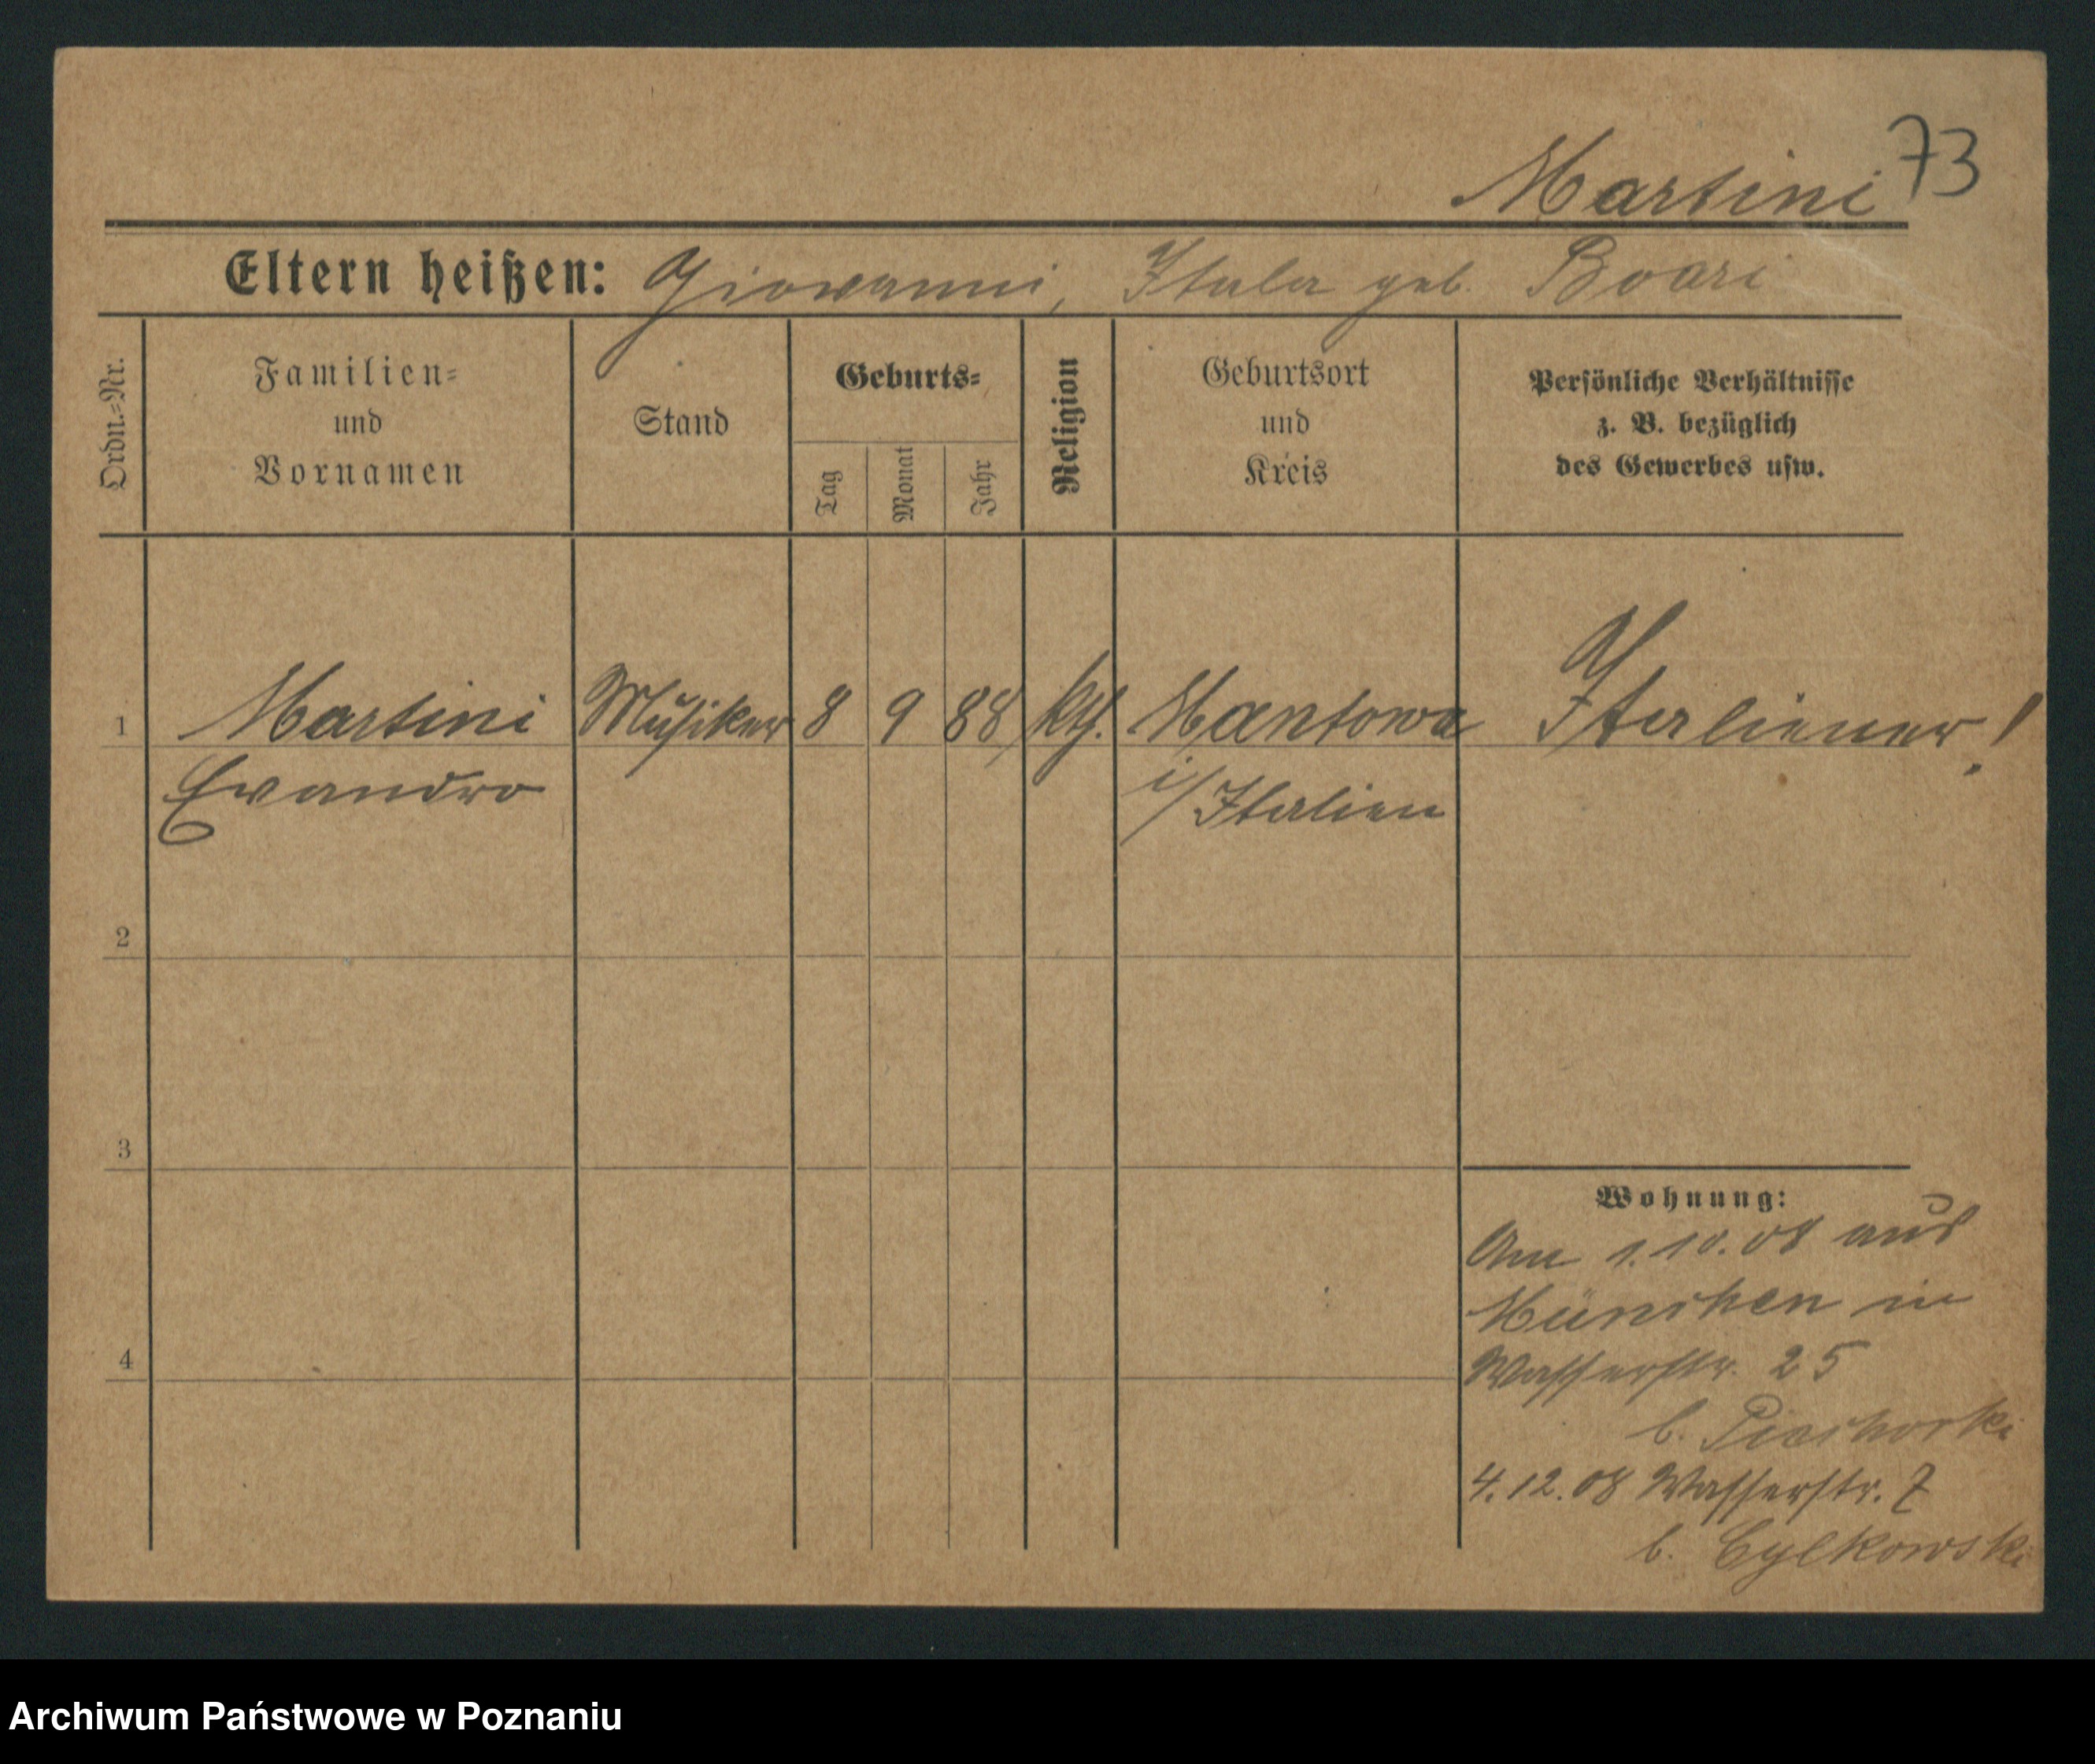 73
Martini
Eltern heißen: Giovanni, Itala geb. Boari
Ordn.=Nr.
Familien=
und
Vornamen
Stand
Geburts=
Tag
Monat
Jahr
Religion
Geburtsort
und
Kreis
Persönliche Verhältnisse
z. B. bezüglich
des Gewerbes usw.
1 Martini Musiker 8 9 88 kth. Mantowa Italiener!
Evandro i/Italien
2
3
4
Wohnung:
Am 1.10.08 aus
München in
Wasserstr. 25
b.
4.12.08 Wasserstr. 7
b. Cylkowski
Archiwum Państwowe w Poznaniu